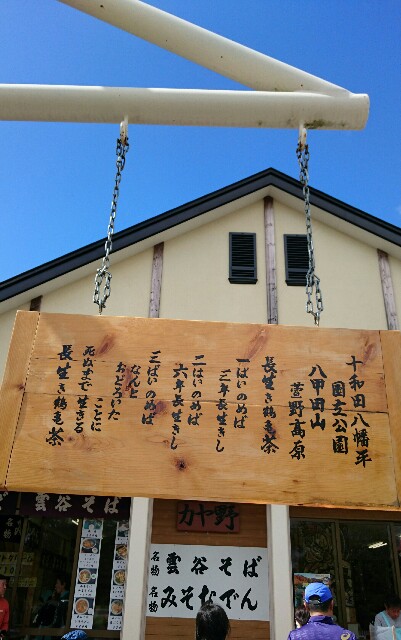 十和田八幡平
国立公園
八甲田山
萱野高原
長生き鶴亀茶
一ぱいのめば
三年長生きし
二はいのめば
六年長生きし
三ばいのめば
なんと
おどろいた
ことに
死ぬまで生きる
長生き鶴亀茶
雲谷そば
カヤ野
名物 雲谷そば
名物 みそおでん